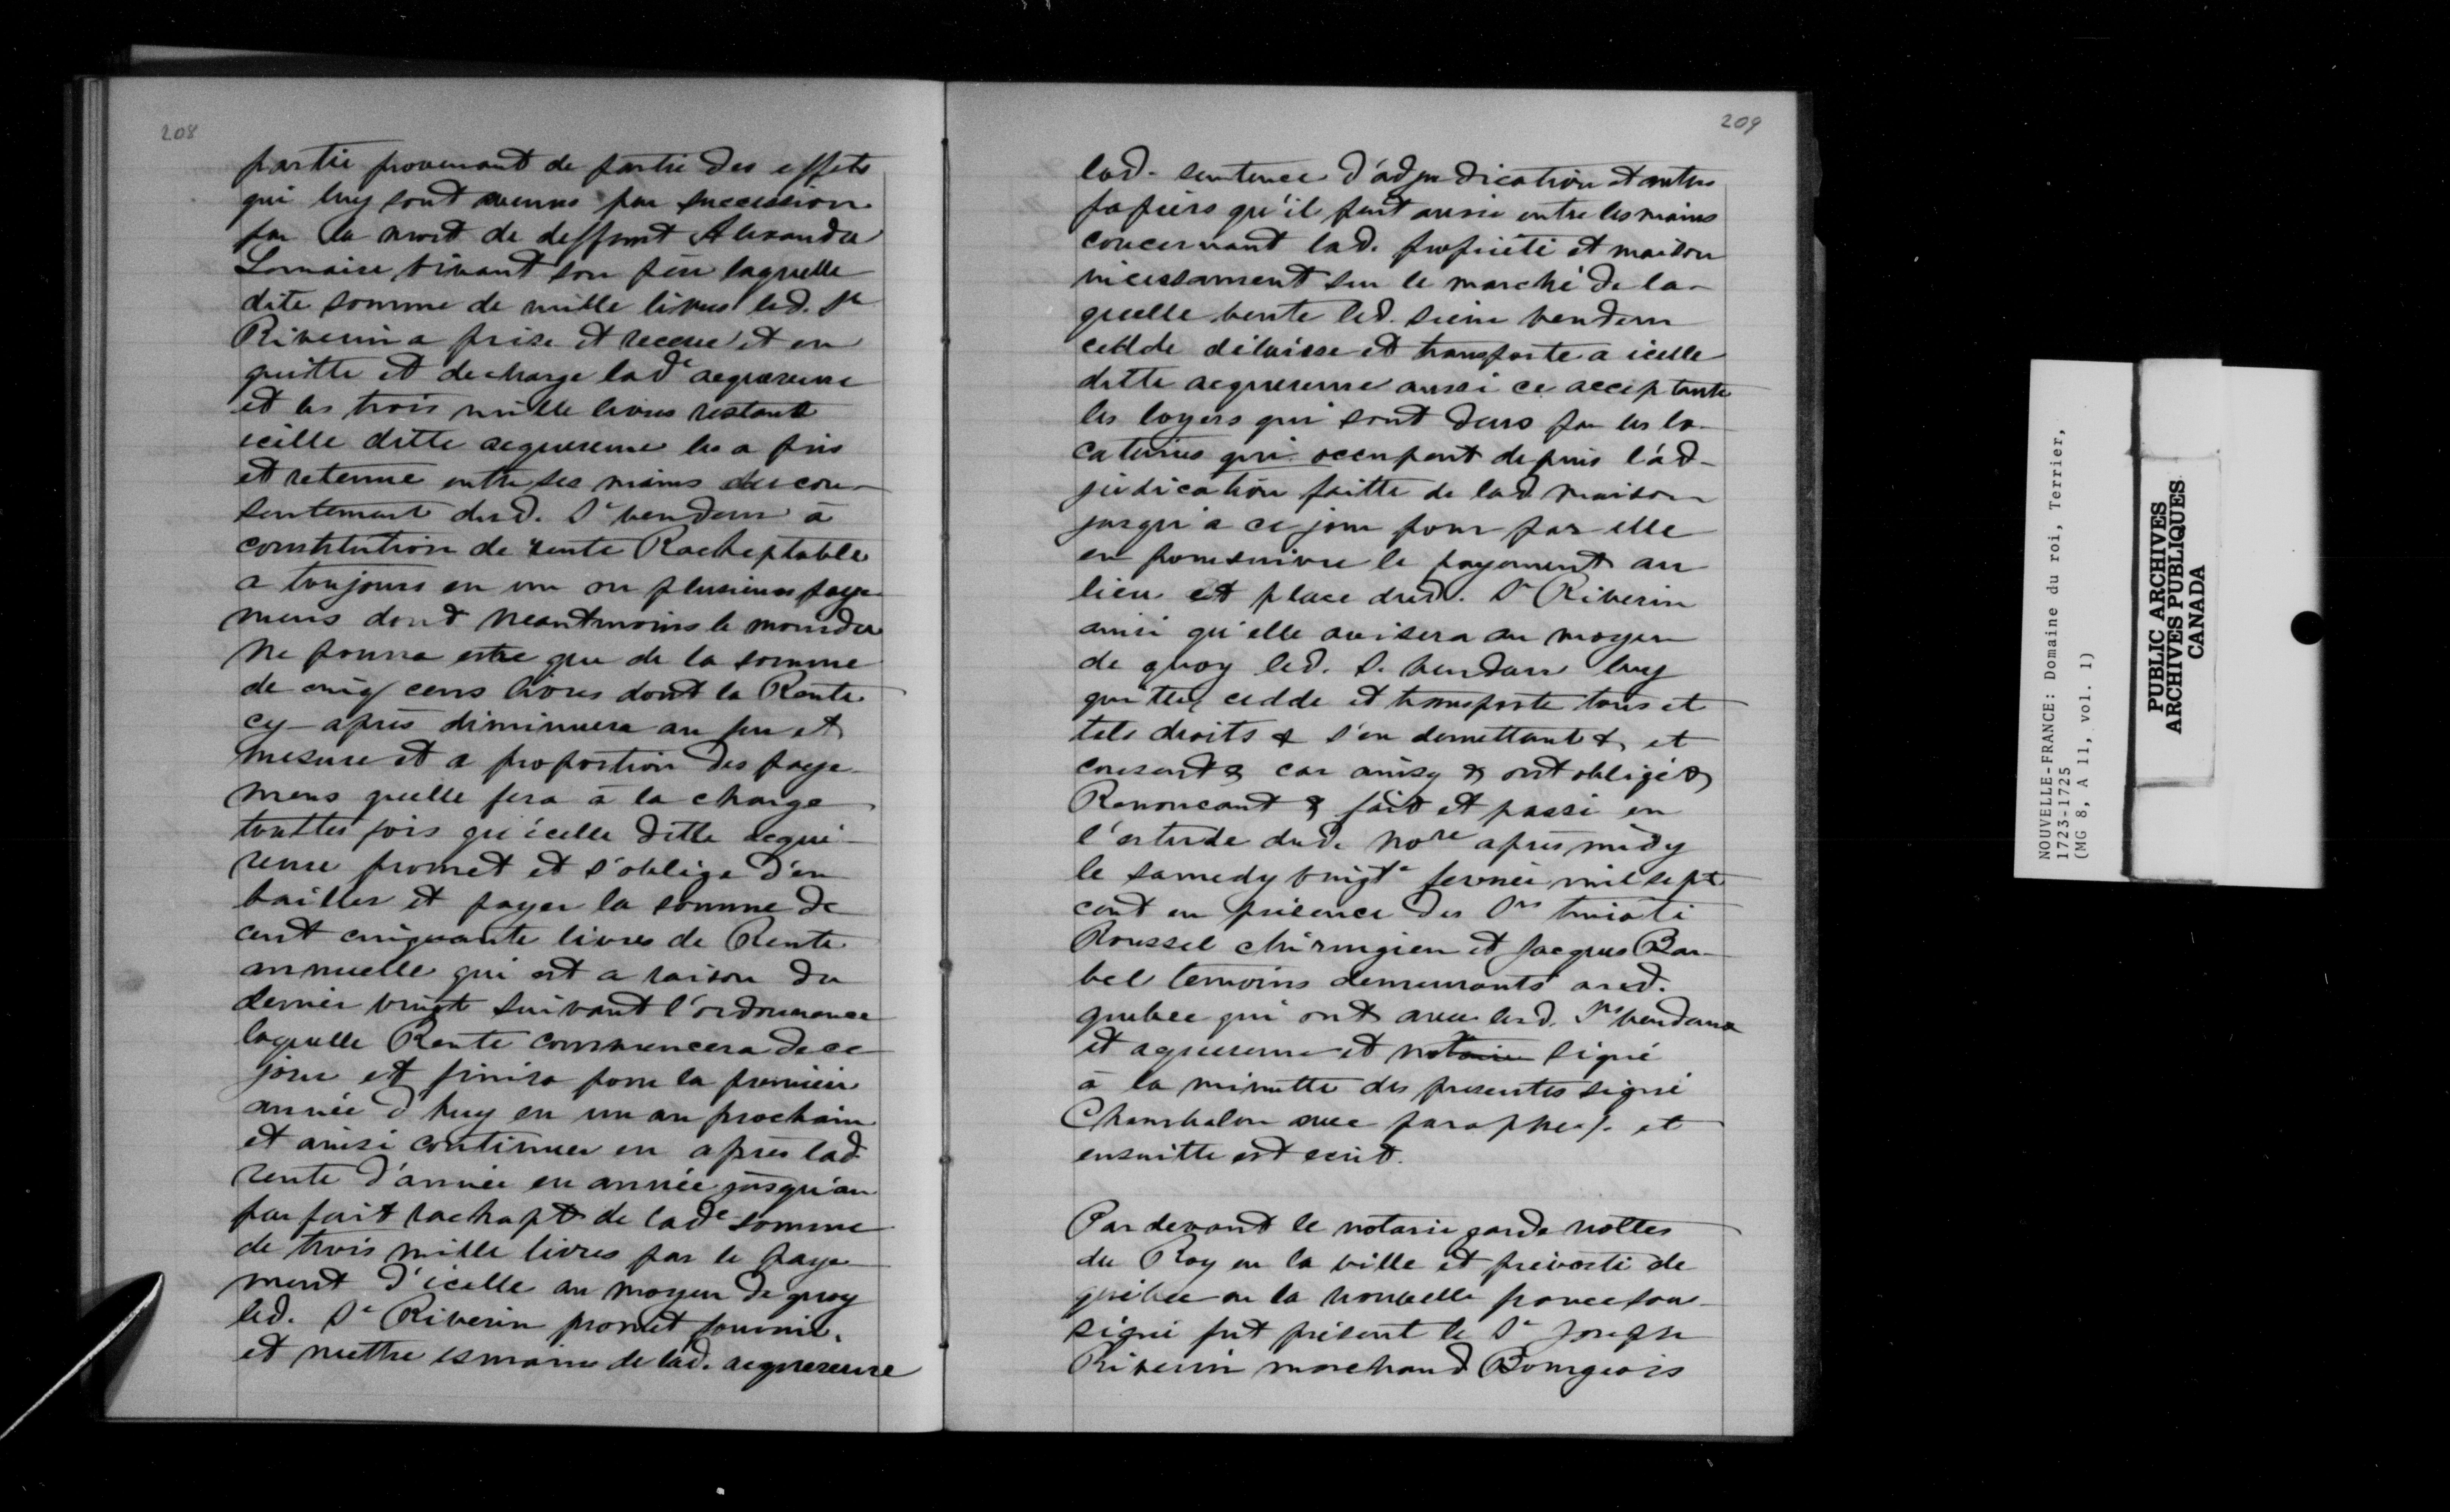 208
partie provenant de partie des effets
qui luy sont avenus par succession
par la mort de deffunt Alexandre
Lemaire vivant son père laquelle
dite somme de mille livres led. Sr
Riverin a prise et receue et en
quitte et decharge lade acquereure
et les trois mille livres restant
icelle ditte acquereure les a pris
et retenue entre ses mains du con-
sentement dud. Sr vendeur à
constitution de rente Racheptable
a toujours en un ou plusieurs paye-
mens dont neantmoins le moindre
ne pourra estre que de la somme
de cinq cens livres dont la Rente
cy-après diminuera au fur et
mesure et a proportion des paye-
mens quelle fera à la charge
touttes fois qu'icelle ditte acqué-
reure promet et s'oblige d'en
bailler et payer la somme de
cent cinquante livres de Rente
annuelle qui est a raison du
denier vingt suivant l'ordonnance
laquelle Rente commencera de ce
jour et finira pour la première
année d'huy en un an prochain
et ainsi continuer en après lad.
rente d'année en année jusqu'au
parfait rachapt de lade somme
de trois mille livres par le paye-
ment d'icelle au moyen de quoy
led. Sr Riverin promet fournir
et mettre es mains de lad. acquereure
209
lad. sentence d'adjudication et autres
papiers qu'il peut avoir entre les mains
concernant lad. propriété et maison
necessament sur le marché de la-
quelle vente led. sieur vendeur
cedde délaisse et transporte a icelle
ditte acquereure aussi ce acceptante
les loyers qui sont deus par les lo-
cataires qui occupent depuis l'ad-
judication faitte de lad. maison
jusqu'a ce jour pour par elle
en poursuivre le payement au
lieu et place dud. Sr Riverin
ainsi qu'elle avisera au moyen
de quoy led. S. vendeur luy
quitte, cedde et transporte tous et
tels droits & s'en demettant & et
consent & car ainsy & ont obligé &
Renoncant & fait et passé en
l'estude dud. nore après midy
le samedy vingte fevrier mil sept
cent en présence des Srs
Roussel chirurgien et Jacques Bar-
bel temoins demeurants aud.
quebec qui ont avec lesd. Srs vendeur
et aquereure et notaire signé
à la minutte des presentes signé
Chambalon avec paraphe /. et
ensuitte est ecrit.
Par devant le notaire garde nottes
du Roy en la ville et prévosté de
quebec en la nouvelle france sous-
signé fut présent le Sr Joseph
Riverin marchand Bourgeois
NOUVELLE-FRANCE: Domaine du roi, Terrier,
1723-1725
(MG 8, A 11, vol. 1)
PUBLIC ARCHIVES
ARCHIVES PUBLIQUES
CANADA